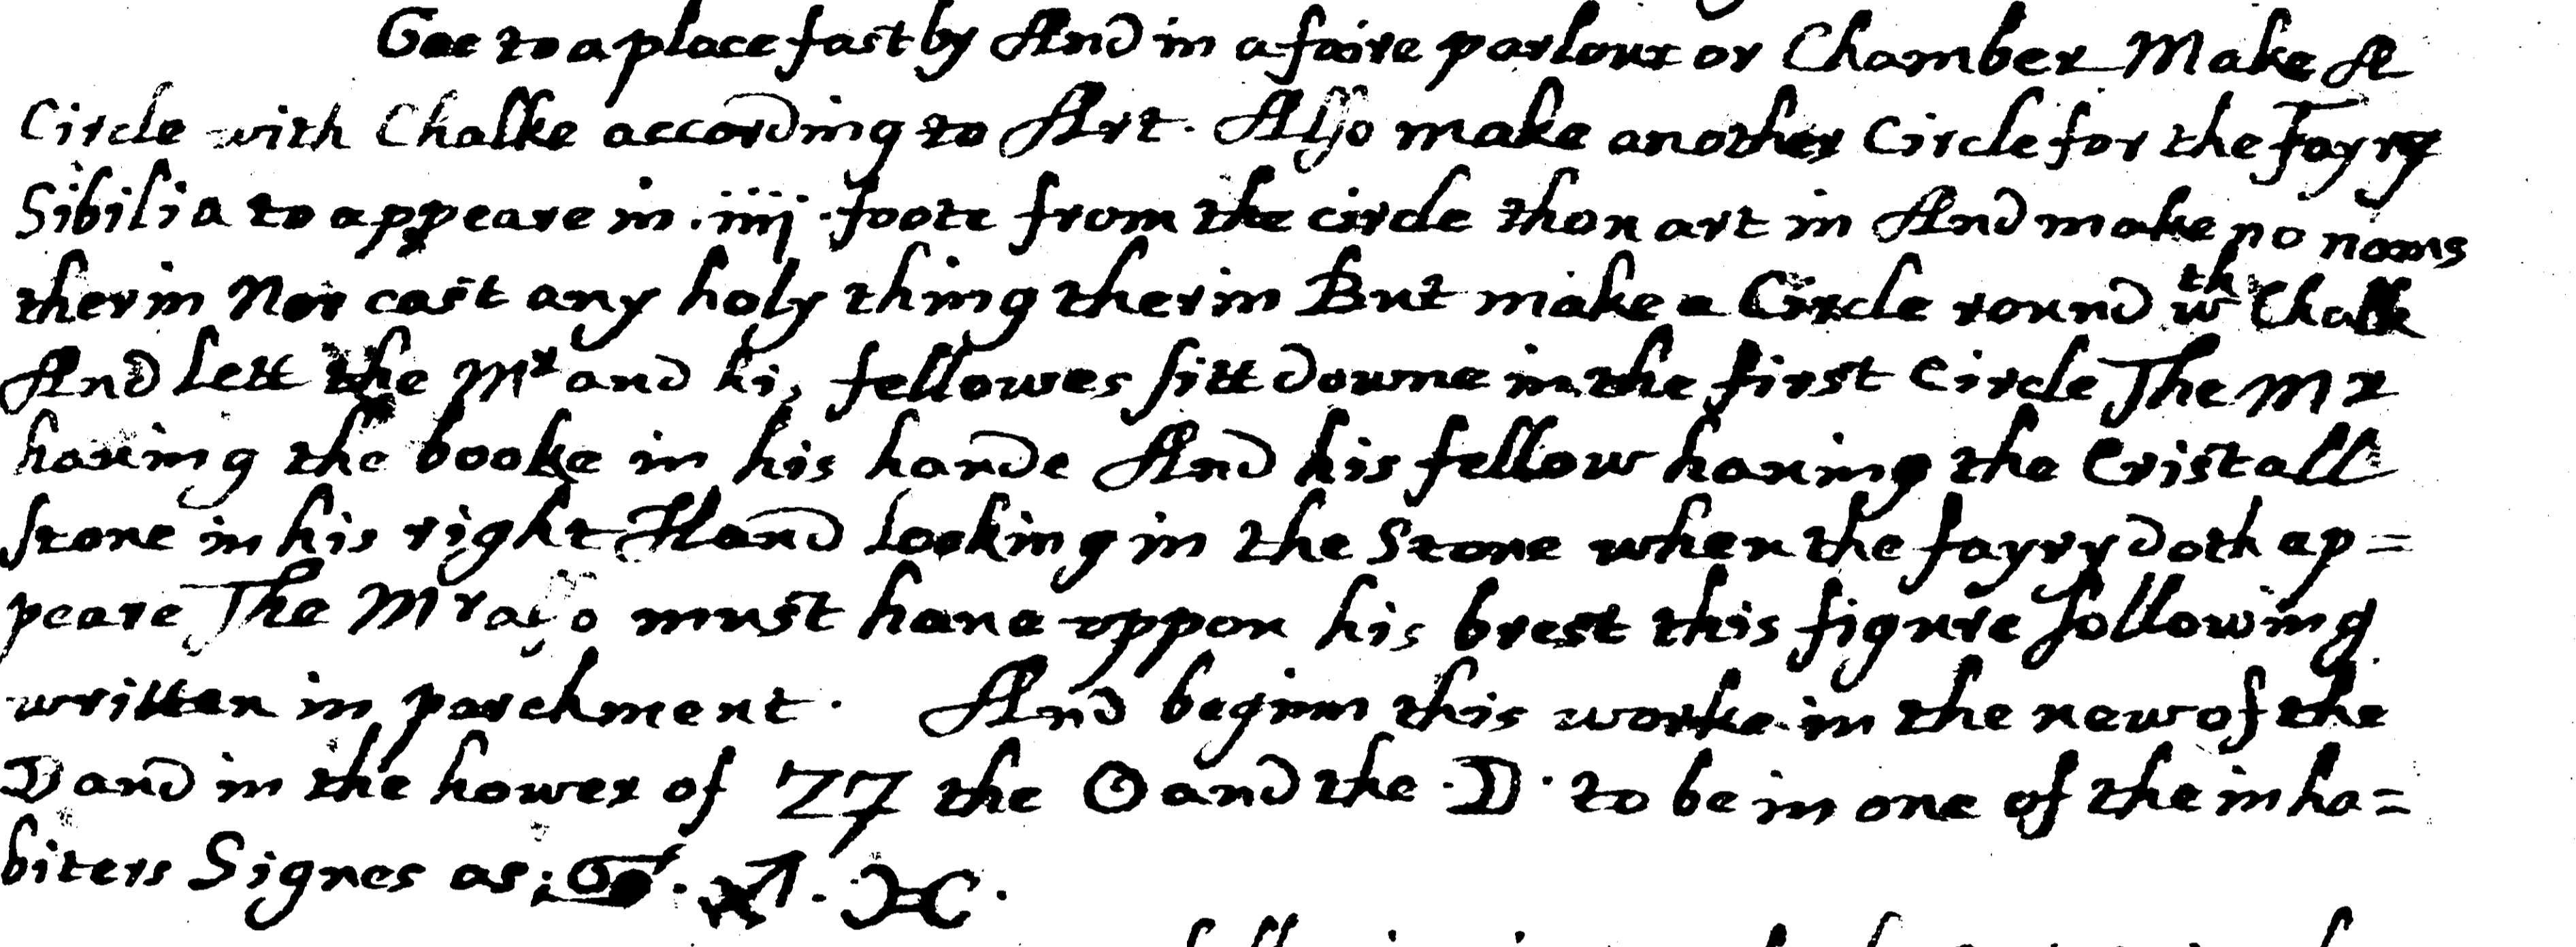 Goe to a place fast by And in a faire parlour or Chamber Make A
Circle with Chalke according to Art. Also make another Circle for the Fayry
Sibilia to appeare in .iiij. foote from the circle thou art in And make no nams
therin Nor cast any holy thing therin But make a Circle round wth Chalk
And lett the Mr and his fellowes sitt downe in the first Circle The Mr
hauing the booke in his hande And his fellow hauing the Cristall
stone in his right Hand looking in the Stone when the fayry doth ap=
peare The Mr also must haue oppon his brest this figure following
written in parchment. And beginn this worke in the new of the
☽ and in the hower of ♃ the ☉ and the .☽. to be in one of the inha=
biters Signes as: ♋. ♐. ♓.